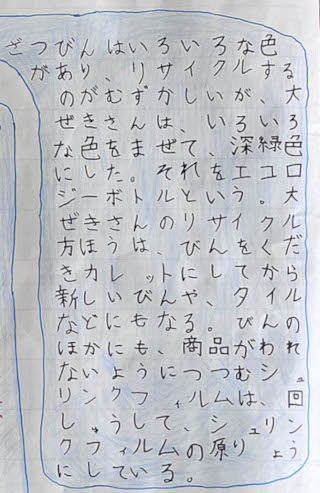 る大ろ色ロ大ルだらルのれュ回ンう
色す、い緑ユ。クくかィんわシ、リょ
なルがろ深エうイをてタびがむは、ュり
ろクい、いをいサんし。品つムシ原
いイし、てれとりびにやる商つル、のる。
ろサかはぜそルの、トんな、にィてム
いりずんま。トんは、ッびももうフしルい
は、むさをたボさうレいににょクうィて
んりがき色しーきほカしどかいンュフし
びあのぜなにジぜ方き新なほなりしクに
つが
ざ